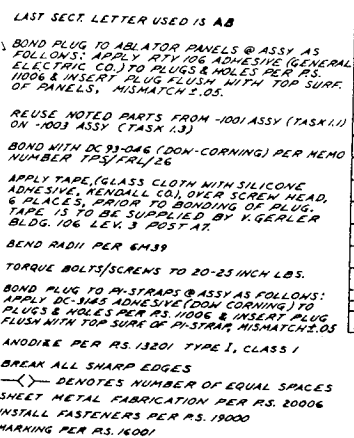 LAST SECT. LETTER USED IS AB
BOND PLUG TO ABLATOR PANELS @ ASSY AS
FOLLOWS: APPLY RTV 106 ADHESIVE (GENERAL
ELECTRIC CO.) TO PLUGS & HOLES PER P.S.
11006 & INSERT PLUG FLUSH WITH TOP SURF.
OF PANELS, MISMATCH ±.05.
REUSE NOTED PARTS FROM -1001 ASSY (TASK 1.1)
ON -1003 ASSY (TASK 1.3)
BOND WITH DC 93-046 (DOW-CORNING) PER MEMO
NUMBER TPS/FRL/26
APPLY TAPE, (GLASS CLOTH WITH SILICONE
ADHESIVE, KENDALL CO.), OVER SCREW HEAD,
6 PLACES, PRIOR TO BONDING OF PLUG.
TAPE IS TO BE SUPPLIED BY V. GERLER
BLDG. 106 LEV. 3 POST A7.
BEND RADII PER 6M39
TORQUE BOLTS/SCREWS TO 20-25 INCH LBS.
BOND PLUG TO PI-STRAPS @ ASSY AS FOLLOWS:
APPLY DC-3145 ADHESIVE (DOW CORNING) TO
PLUGS & HOLES PER P.S. 11006 & INSERT PLUG
FLUSH WITH TOP SURF OF PI-STRAP, MISMATCH ±.05
ANODIZE PER P.S. 13201 TYPE I, CLASS 1
BREAK ALL SHARP EDGES
DENOTES NUMBER OF EQUAL SPACES
SHEET METAL FABRICATION PER P.S. 20006
INSTALL FASTENERS PER P.S. 19000
MARKING PER P.S. 16001